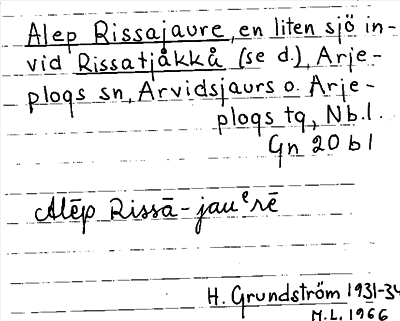 Alep Rissajaure, en liten sjö in-
vid Rissatjåkkå (se d.), Arje-
plogs sn, Arvidsjaurs o. Arje-
plogs tg, Nb.l.
Gn 20 b 1
Alēp Rissā-jauᵉrē
H. Grundström 1931-34
M.L. 1966